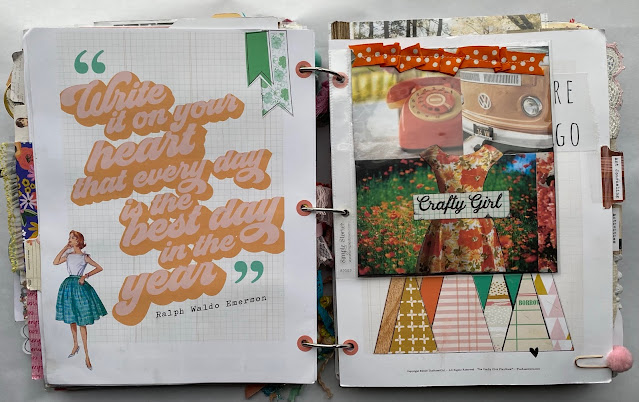 “
Write
it on your
heart
that every day
is the
best day
in the
year ”
Ralph Waldo Emerson
RE
GO
Crafty Girl
Simple Stories
BORROW